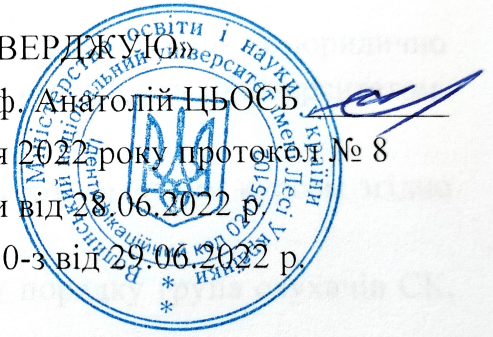 ВЕРДЖУЮ»
ф. Анатолій ЦЬОСЬ
я 2022 року протокол № 8
и від 28.06.2022 р.
0-з від 29.06.2022 р.
Міністерство освіти і науки України
Волинський національний університет імені Лесі Українки
Ідентифікаційний код